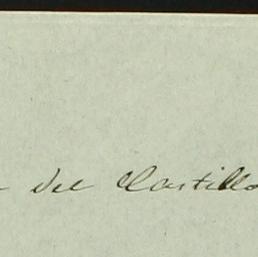 del Castillo